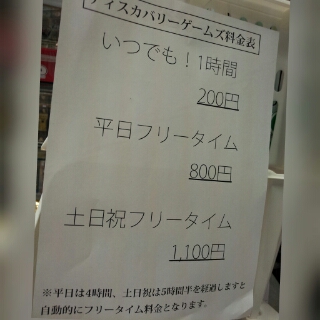 ディスカバリーゲームズ料金表
いつでも！1時間
200円
平日フリータイム
800円
土日祝フリータイム
1,100円
※平日は4時間、土日祝は5時間半を経過しますと
自動的にフリータイム料金となります。